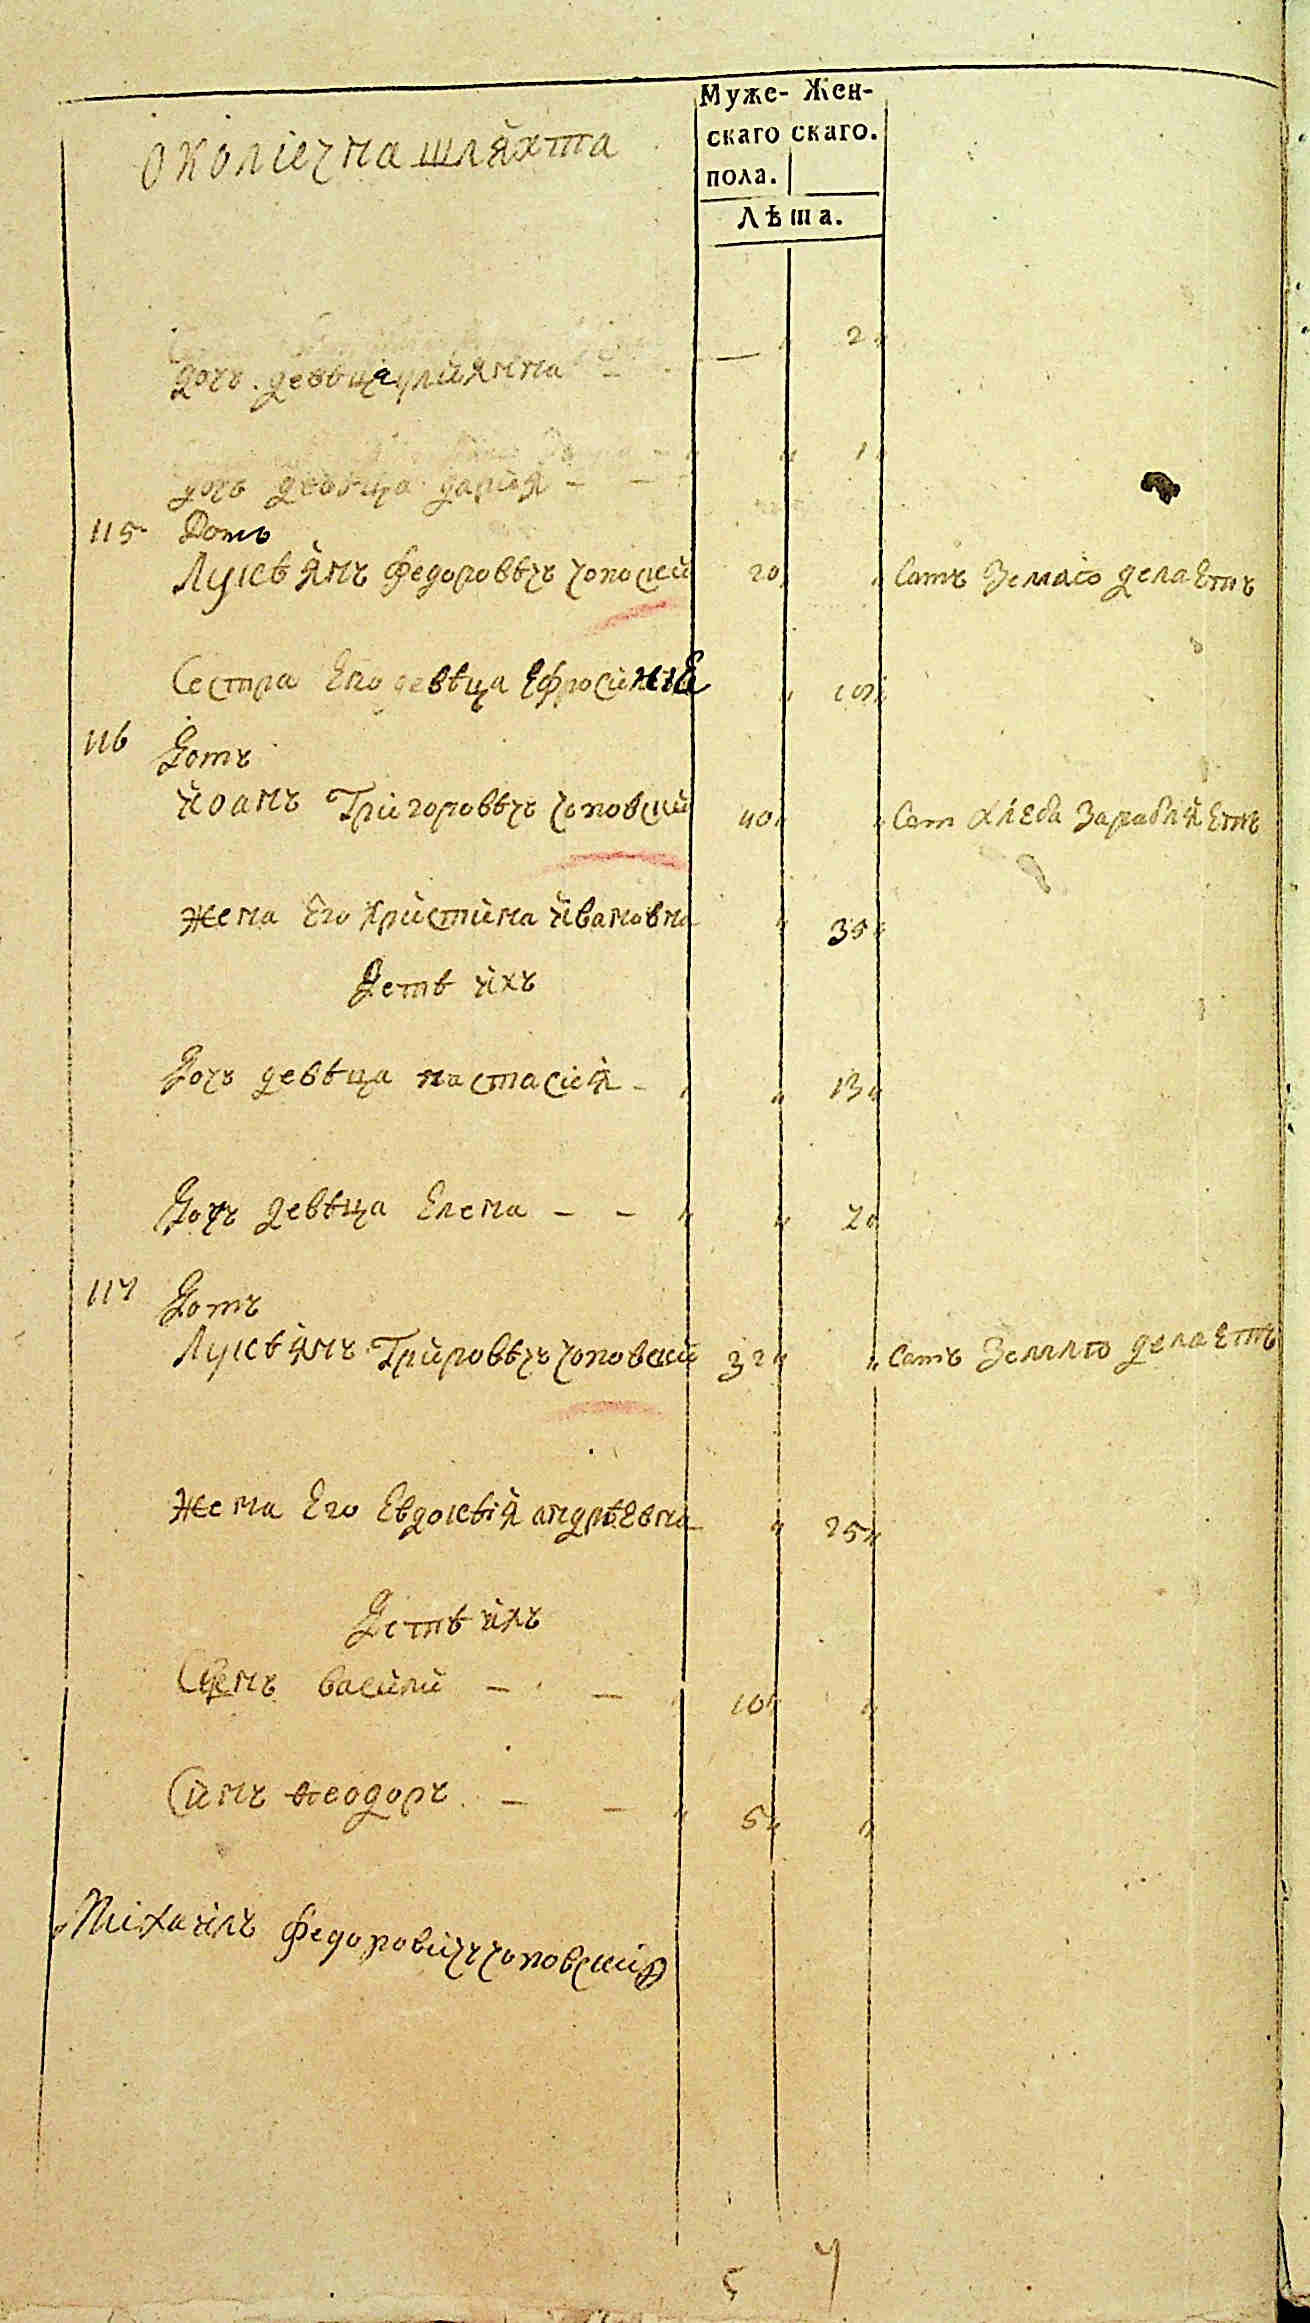 Муже- Жен-
скаго скаго.
пола.
Лѣта.
околѣчна шляхта
дочь девѣца улияняа 2
дочь девѣца дария - - 1
115 Домъ
Лукѣянъ Федоровѣчъ Чопоский 20 Самъ Землю делаетъ
Сестра Его девѣца Ефросиния 10
116 Домъ
иоанъ Григоровѣчъ Чоповский 40 Сам хлеба Зарабляетъ
жена Его Христина ивановна 35
Детѣ ихъ
Дочъ девѣца настасия - 13
Дочъ девѣца Елена - - 2
117 Домъ
Лукѣянъ Григоровѣчъ Чоповский 32 Самъ Землю делаетъ
жена Его Евдокѣия андрѣевна 25
Детѣ ихъ
Синъ василий - - 10
Синъ Феодоръ - - 5
Михаилъ Федоровичъ Чоповский
5 4